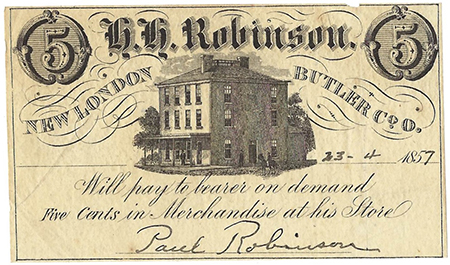 5 H. H. Robinson. 5
NEW LONDON BUTLER Co. O.
23-4 1857
Will pay to bearer on demand
Five Cents in Merchandise at his Store
Paul Robinson